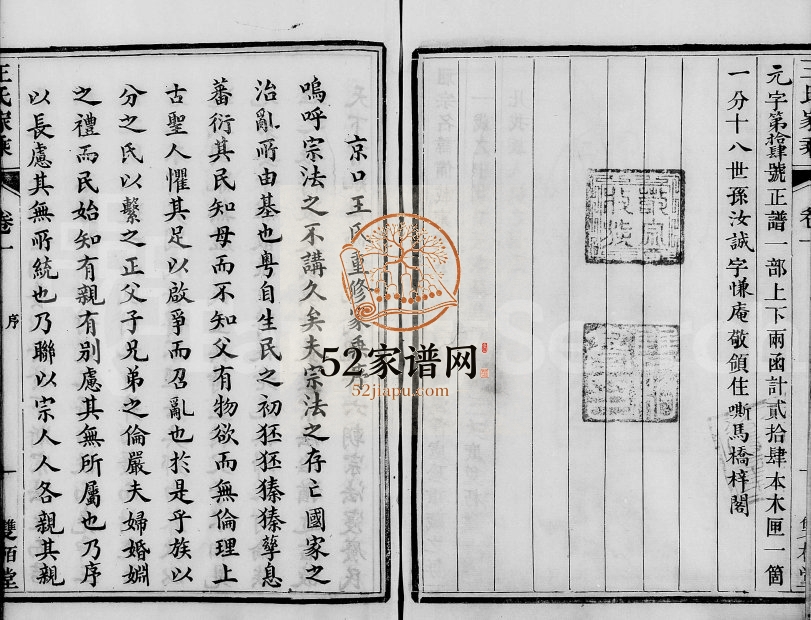 元字第拾肆號正譜一部上下兩函計貳拾肆本木匣一箇
一分十八世孫汝誠字慊庵敬領住嘶馬橋梓閣
京口王氏重修家乘
嗚呼宗法之不講久矣夫宗法之存亡國家之
治亂所由基也粵自生民之初狉狉獉獉孳息
蕃衍其民知母而不知父有物欲而無倫理上
古聖人懼其足以啟爭而召亂也於是乎族以
分之氏以繫之正父子兄弟之倫嚴夫婦婚姻
之禮而民始知有親有别慮其無所屬也乃序
以長慮其無所統也乃聯以宗人人各親其親
王氏家乘
卷一
序
一
雙栢堂
52家谱网
52jiapu.com